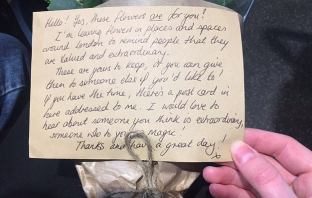 Hello! Yes, these flowers are for you!
I'm leaving flowers in places and spaces
around london to remind people that they
are valued and extraordinary.
These are yours to keep, or you can give
them to someone else if you'd like to!
If you have the time, there's a post card in
here addressed to me. I would love to
hear about someone you think is extraordinary,
someone who to you is magic!
Thanks and have a great day!
x